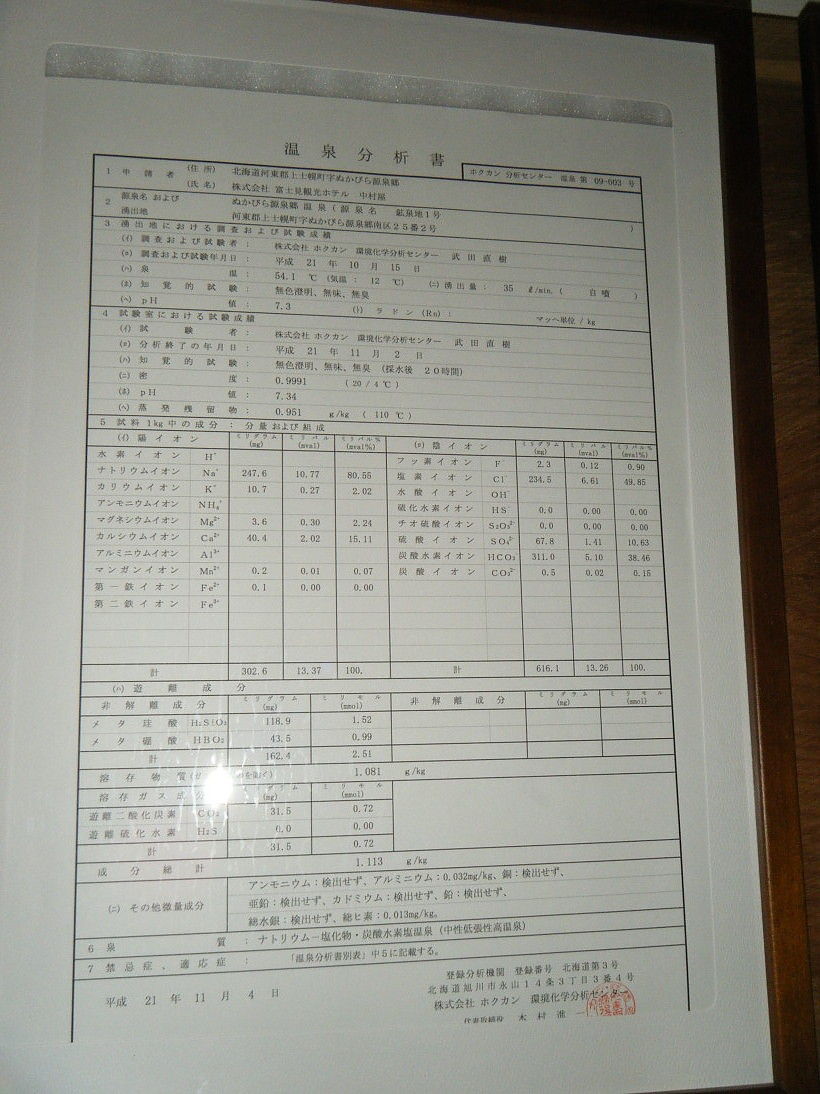 温泉分析書
ホクカン 分析センター 温泉 第 09-603 号
1 申請者 (住所) 北海道河東郡上士幌町字ぬかびら源泉郷
(氏名) 株式会社 富士見観光ホテル 中村屋
2 源泉名 および 湧出地 ぬかびら源泉郷 温泉 ( 源泉名 鉱泉地1号 )
河東郡上士幌町字ぬかびら源泉郷南区25番2号
3 湧出地における調査および試験成績
(イ) 調査および試験者 : 株式会社 ホクカン 環境化学分析センター 武田直樹
(ロ) 調査および試験年月日 : 平成 21 年 10 月 15 日
(ハ) 泉温 : 54.1 ℃ (気温 : 12 ℃) (ニ) 湧出量 : 35 ℓ/min. ( 自噴 )
(ホ) 知覚的試験 : 無色澄明、無味、無臭
(ヘ) pH値 : 7.3 (ト) ラドン (Rn) : マッヘ単位 / kg
4 試験室における試験成績
(イ) 試験者 : 株式会社 ホクカン 環境化学分析センター 武田直樹
(ロ) 分析終了の年月日 : 平成 21 年 11 月 2 日
(ハ) 知覚的試験 : 無色澄明、無味、無臭 (採水後 20時間)
(ニ) 密度 : 0.9991 ( 20 / 4 ℃ )
(ホ) pH値 : 7.34
(ヘ) 蒸発残留物 : 0.951 g/kg ( 110 ℃ )
5 試料1kg中の成分 : 分量および組成
(イ) 陽イオン ミリグラム (mg) ミリバル (mval) ミリバル% (mval%) (ロ) 陰イオン ミリグラム (mg) ミリバル (mval) ミリバル% (mval%)
水素イオン H⁺ フッ素イオン F⁻ 2.3 0.12 0.90
ナトリウムイオン Na⁺ 247.6 10.77 80.55 塩素イオン Cl⁻ 234.5 6.61 49.85
カリウムイオン K⁺ 10.7 0.27 2.02 水酸イオン OH⁻
アンモニウムイオン NH₄⁺ 硫化水素イオン HS⁻ 0.0 0.00 0.00
マグネシウムイオン Mg²⁺ 3.6 0.30 2.24 チオ硫酸イオン S₂O₃²⁻ 0.0 0.00 0.00
カルシウムイオン Ca²⁺ 40.4 2.02 15.11 硫酸イオン SO₄²⁻ 67.8 1.41 10.63
アルミニウムイオン Al³⁺ 炭酸水素イオン HCO₃⁻ 311.0 5.10 38.46
マンガンイオン Mn²⁺ 0.2 0.01 0.07 炭酸イオン CO₃²⁻ 0.5 0.02 0.15
第一鉄イオン Fe²⁺ 0.1 0.00 0.00
第二鉄イオン Fe³⁺
計 302.6 13.37 100. 計 616.1 13.26 100.
(ハ) 遊離成分
非解離成分 ミリグラム (mg) ミリモル (mmol) 非解離成分 ミリグラム (mg) ミリモル (mmol)
メタ珪酸 H₂SiO₃ 118.9 1.52
メタ硼酸 HBO₂ 43.5 0.99
計 162.4 2.51
溶存物質 を除く) 1.081 g/kg
溶存ガス成分 ミリグラム (mg) ミリモル (mmol)
遊離二酸化炭素 CO₂ 31.5 0.72
遊離硫化水素 H₂S 0.0 0.00
計 31.5 0.72
成分総計 1.113 g/kg
(ニ) その他微量成分 アンモニウム：検出せず、アルミニウム：0.032mg/kg、銅：検出せず、
亜鉛：検出せず、カドミウム：検出せず、鉛：検出せず、
総水銀：検出せず、総ヒ素：0.013mg/kg。
6 泉質 : ナトリウム－塩化物・炭酸水素塩温泉 (中性低張性高温泉)
7 禁忌症、適応症 : 「温泉分析書別表」中5に記載する。
平成 21 年 11 月 4 日
登録分析機関 登録番号 北海道第3号
北海道旭川市永山14条3丁目3番4号
株式会社 ホクカン 環境化学分析センター
代表取締役 木村進一